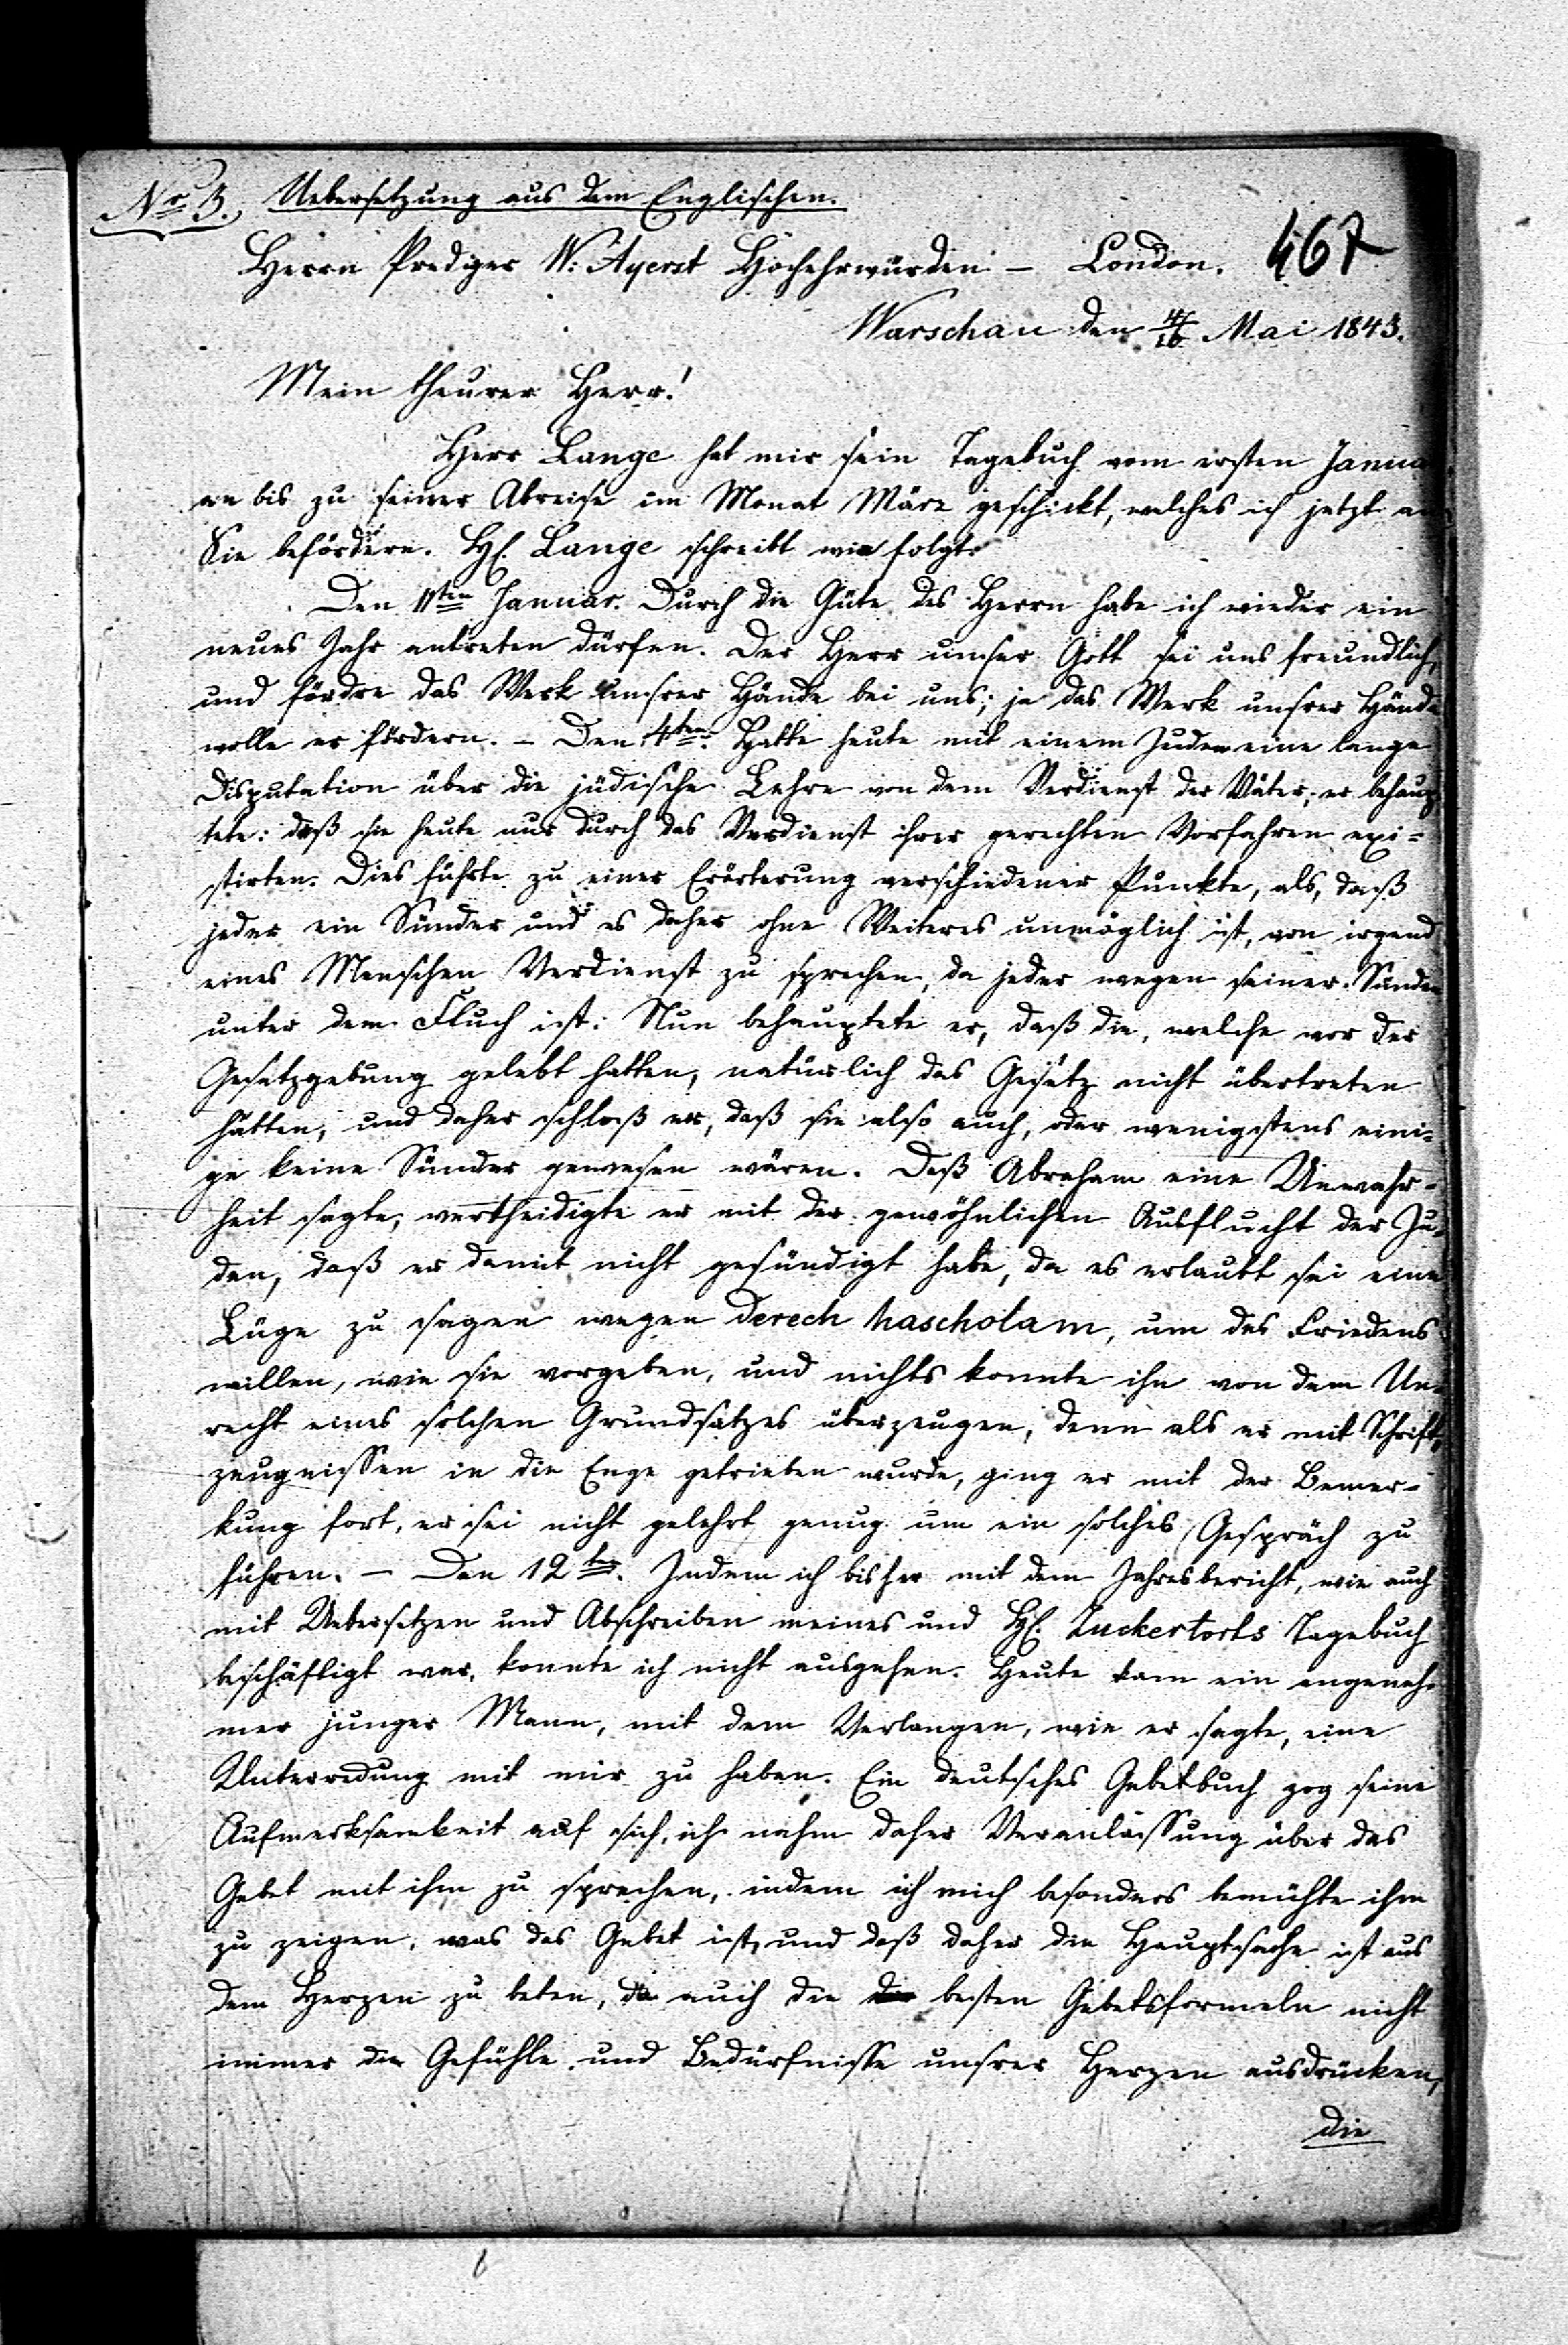 No 3. Uebersetzung aus dem Englischen.
467
Herrn Prediger W: Ayerst Hochehrwürden – London.
Warschau den 4/16 Mai 1843.
Mein theurer Herr!
Herr Lange hat mir sein Tagebuch vom ersten Janua
an bis zu seiner Abreise im Monat März geschickt, welches ich jetzt an
Sie befördere. H. Lange schreibt wie folgt:
Den 1sten Januar. Durch die Güte des Herrn habe ich wieder ein
neues Jahr antreten dürfen. Der Herr unser Gott sei uns freundlich,
und fördre das Werk unsrer Hände bei uns; ja das Werk unsrer Hände
wolle er fördern. – Den 4ten. Hatte heute mit einem Juden eine lange
Disputation über die jüdische Lehre von dem Verdienst der Väter; er behaup
tete: daß sie heute nur durch das Verdienst ihrer gerechten Vorfahren exi=
stirten. Dies führte zu einer Erörterung verschiedener Punkte, als, daß
jeder ein Sünder und es daher ohne Weiteres unmöglich ist, von irgend
eines Menschen Verdienst zu sprechen, da jeder wegen seiner Sünden
unter dem Fluch ist. Nun behauptete er, daß die, welche vor der
Gesetzgebung gelebt hatten, natürlich das Gesetz nicht übertreten
hätten, und daher schloß er, daß sie also auch, oder wenigstens eini=
ge keine Sünder gewesen wären. Daß Abraham eine Unwahr=
heit sagte, vertheidigte er mit der gewöhnlichen Ausflucht der Ju=
den, daß er damit nicht gesündigt habe, da es erlaubt sei eine
Lüge zu sagen wegen Derech hascholam, um des Friedens
willen, wie sie vorgeben, und nichts konnte ihn von dem Un=
recht eines solchen Grundsatzes überzeugen, denn als er mit Schrift=
zeugnissen in die Enge getrieben wurde, ging er mit der Bemer=
kung fort, er sei nicht gelehrt genug um ein solches Gespräch zu
führen. – Den 12ten. Indem ich bisher mit dem Jahresbericht, wie auch
mit Uebersetzen und Abschreiben meines und H. Zuckertorts Tagebuch
beschäftigt war, konnte ich nicht ausgehen. Heute kam ein angeneh=
mer junger Mann, mit dem Verlangen, wie er sagte, eine
Unterredung mit mir zu haben. Ein deutsches Gebetbuch zog seine
Aufmerksamkeit auf sich, ich nahm daher Veranlassung über das
Gebet mit ihm zu sprechen, indem ich mich besonders bemühte ihm
zu zeigen, was das Gebet ist, und daß daher die Hauptsache ist aus
dem Herzen zu beten, da auch die besten Gebetsformeln nicht
immer die Gefühle und Bedürfnisse unsrer Herzen ausdrücken,
die